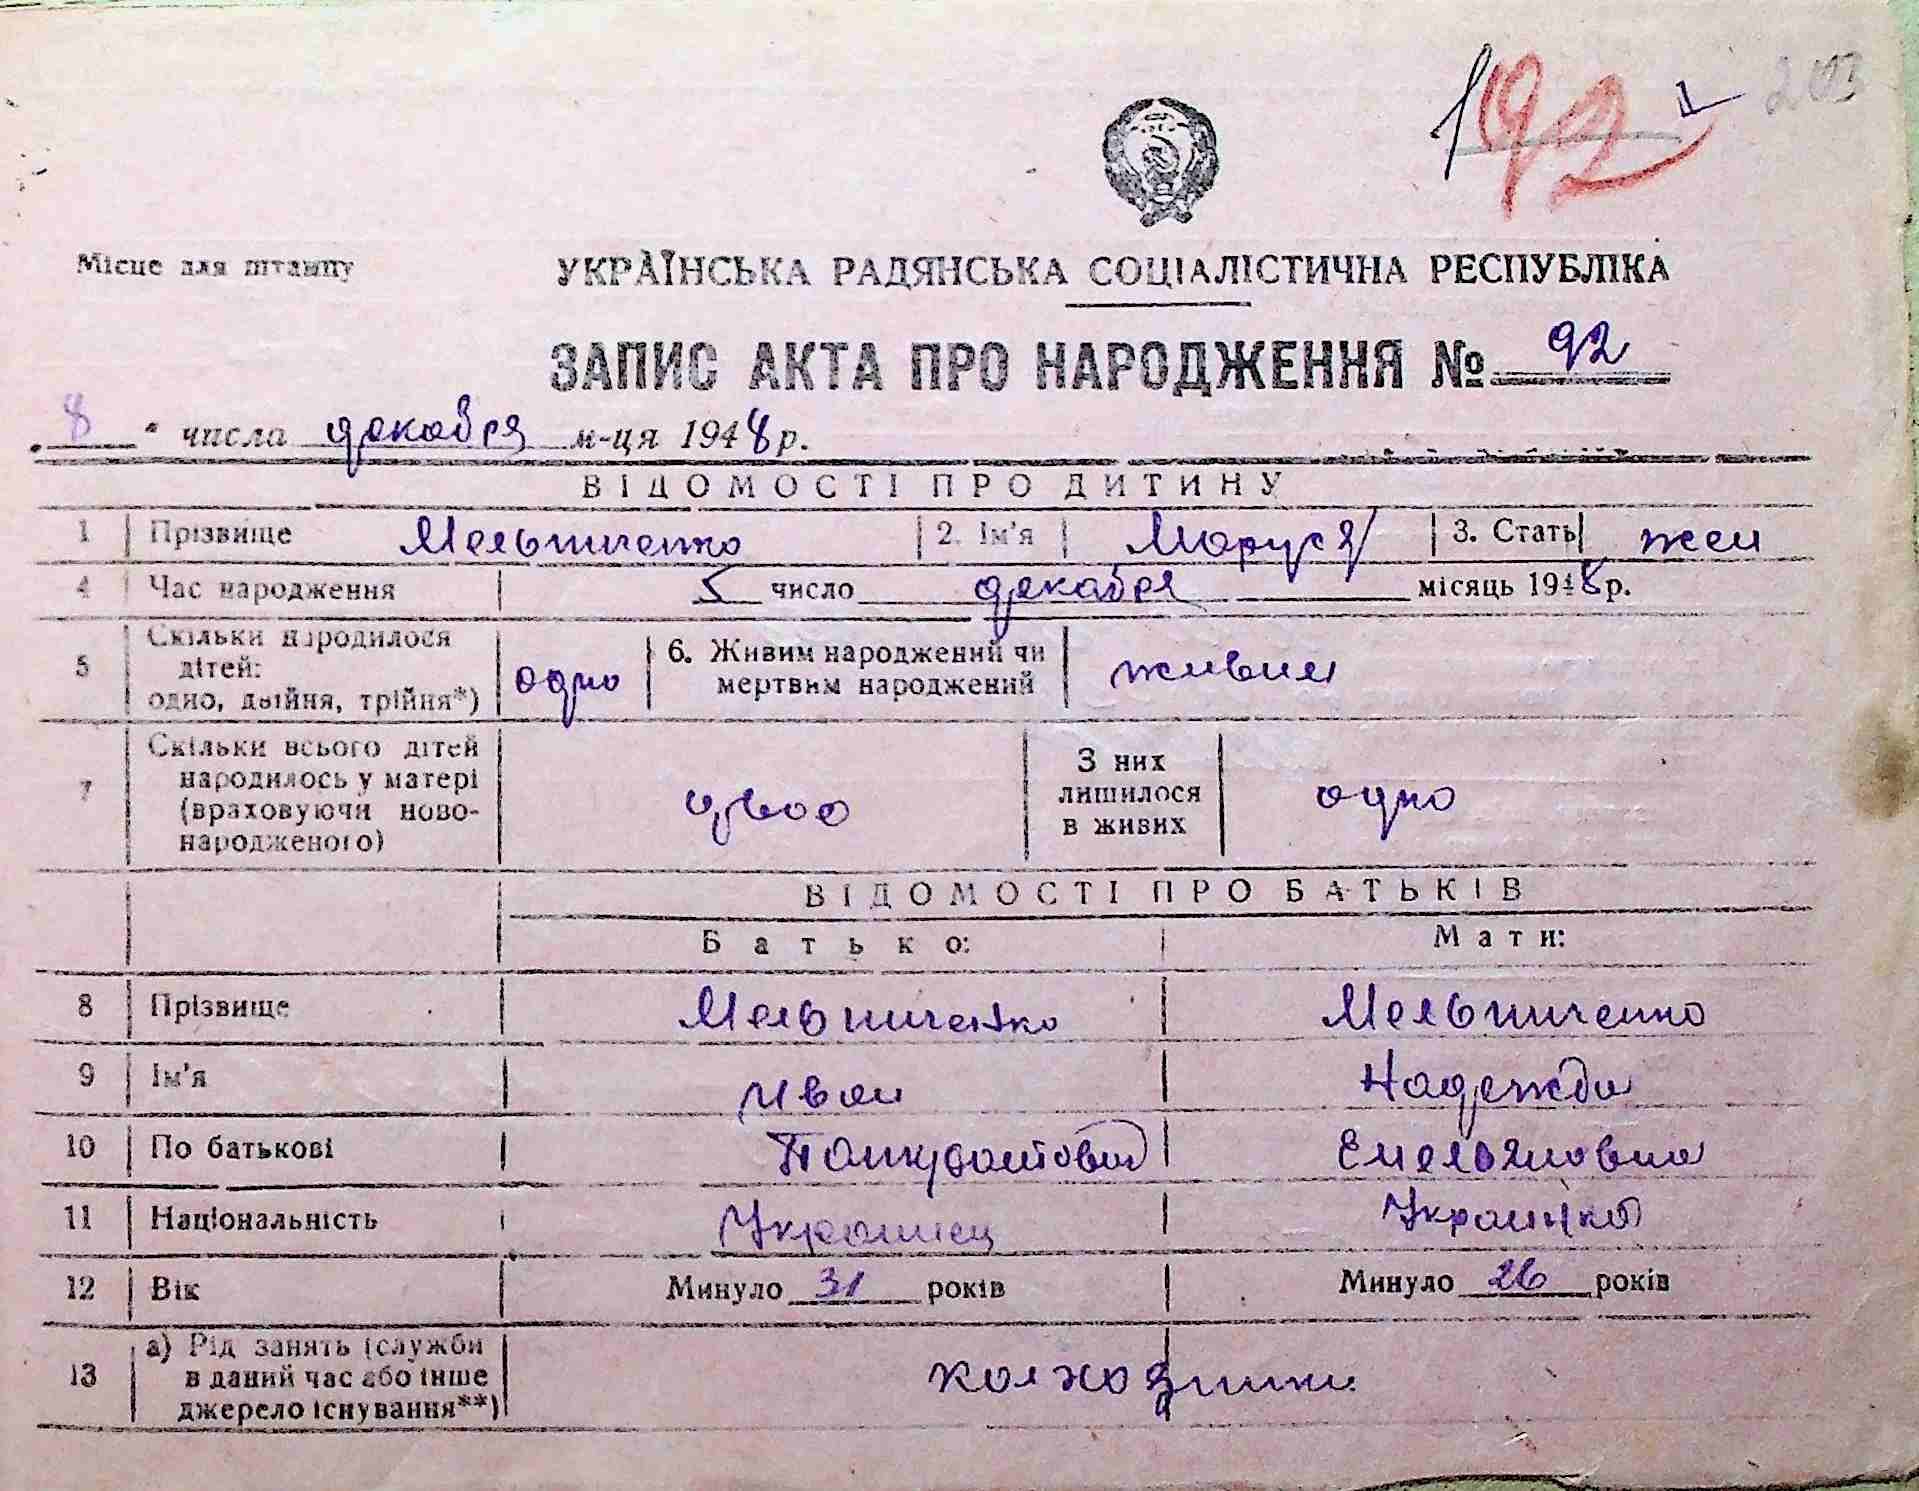 192 203
Місце для штампу
УКРАЇНСЬКА РАДЯНСЬКА СОЦІАЛІСТИЧНА РЕСПУБЛІКА
ЗАПИС АКТА ПРО НАРОДЖЕННЯ № 92
„ 8 “ числа декабря м-ця 1948 р.
ВІДОМОСТІ ПРО ДИТИНУ
1 Прізвище Мельниченко 2. Ім'я Маруся 3. Стать жен
4 Час народження 5 число декабря місяць 1948 р.
5 Скільки народилося
дітей:
одно, двійня, трійня*) одно 6. Живим народжений чи
мертвим народжений живим
7 Скільки всього дітей
народилось у матері
(враховуючи ново-
народженого) двоє З них
лишилося
в живих одно
ВІДОМОСТІ ПРО БАТЬКІВ
Батько: Мати:
8 Прізвище Мельниченко Мельниченко
9 Ім'я Иван Надежда
10 По батькові Емельяновна
11 Національність Украинец Украинка
12 Вік Минуло 31 років Минуло 26 років
13 а) Рід занять (служби
в даний час або інше
джерело існування**) колхозники